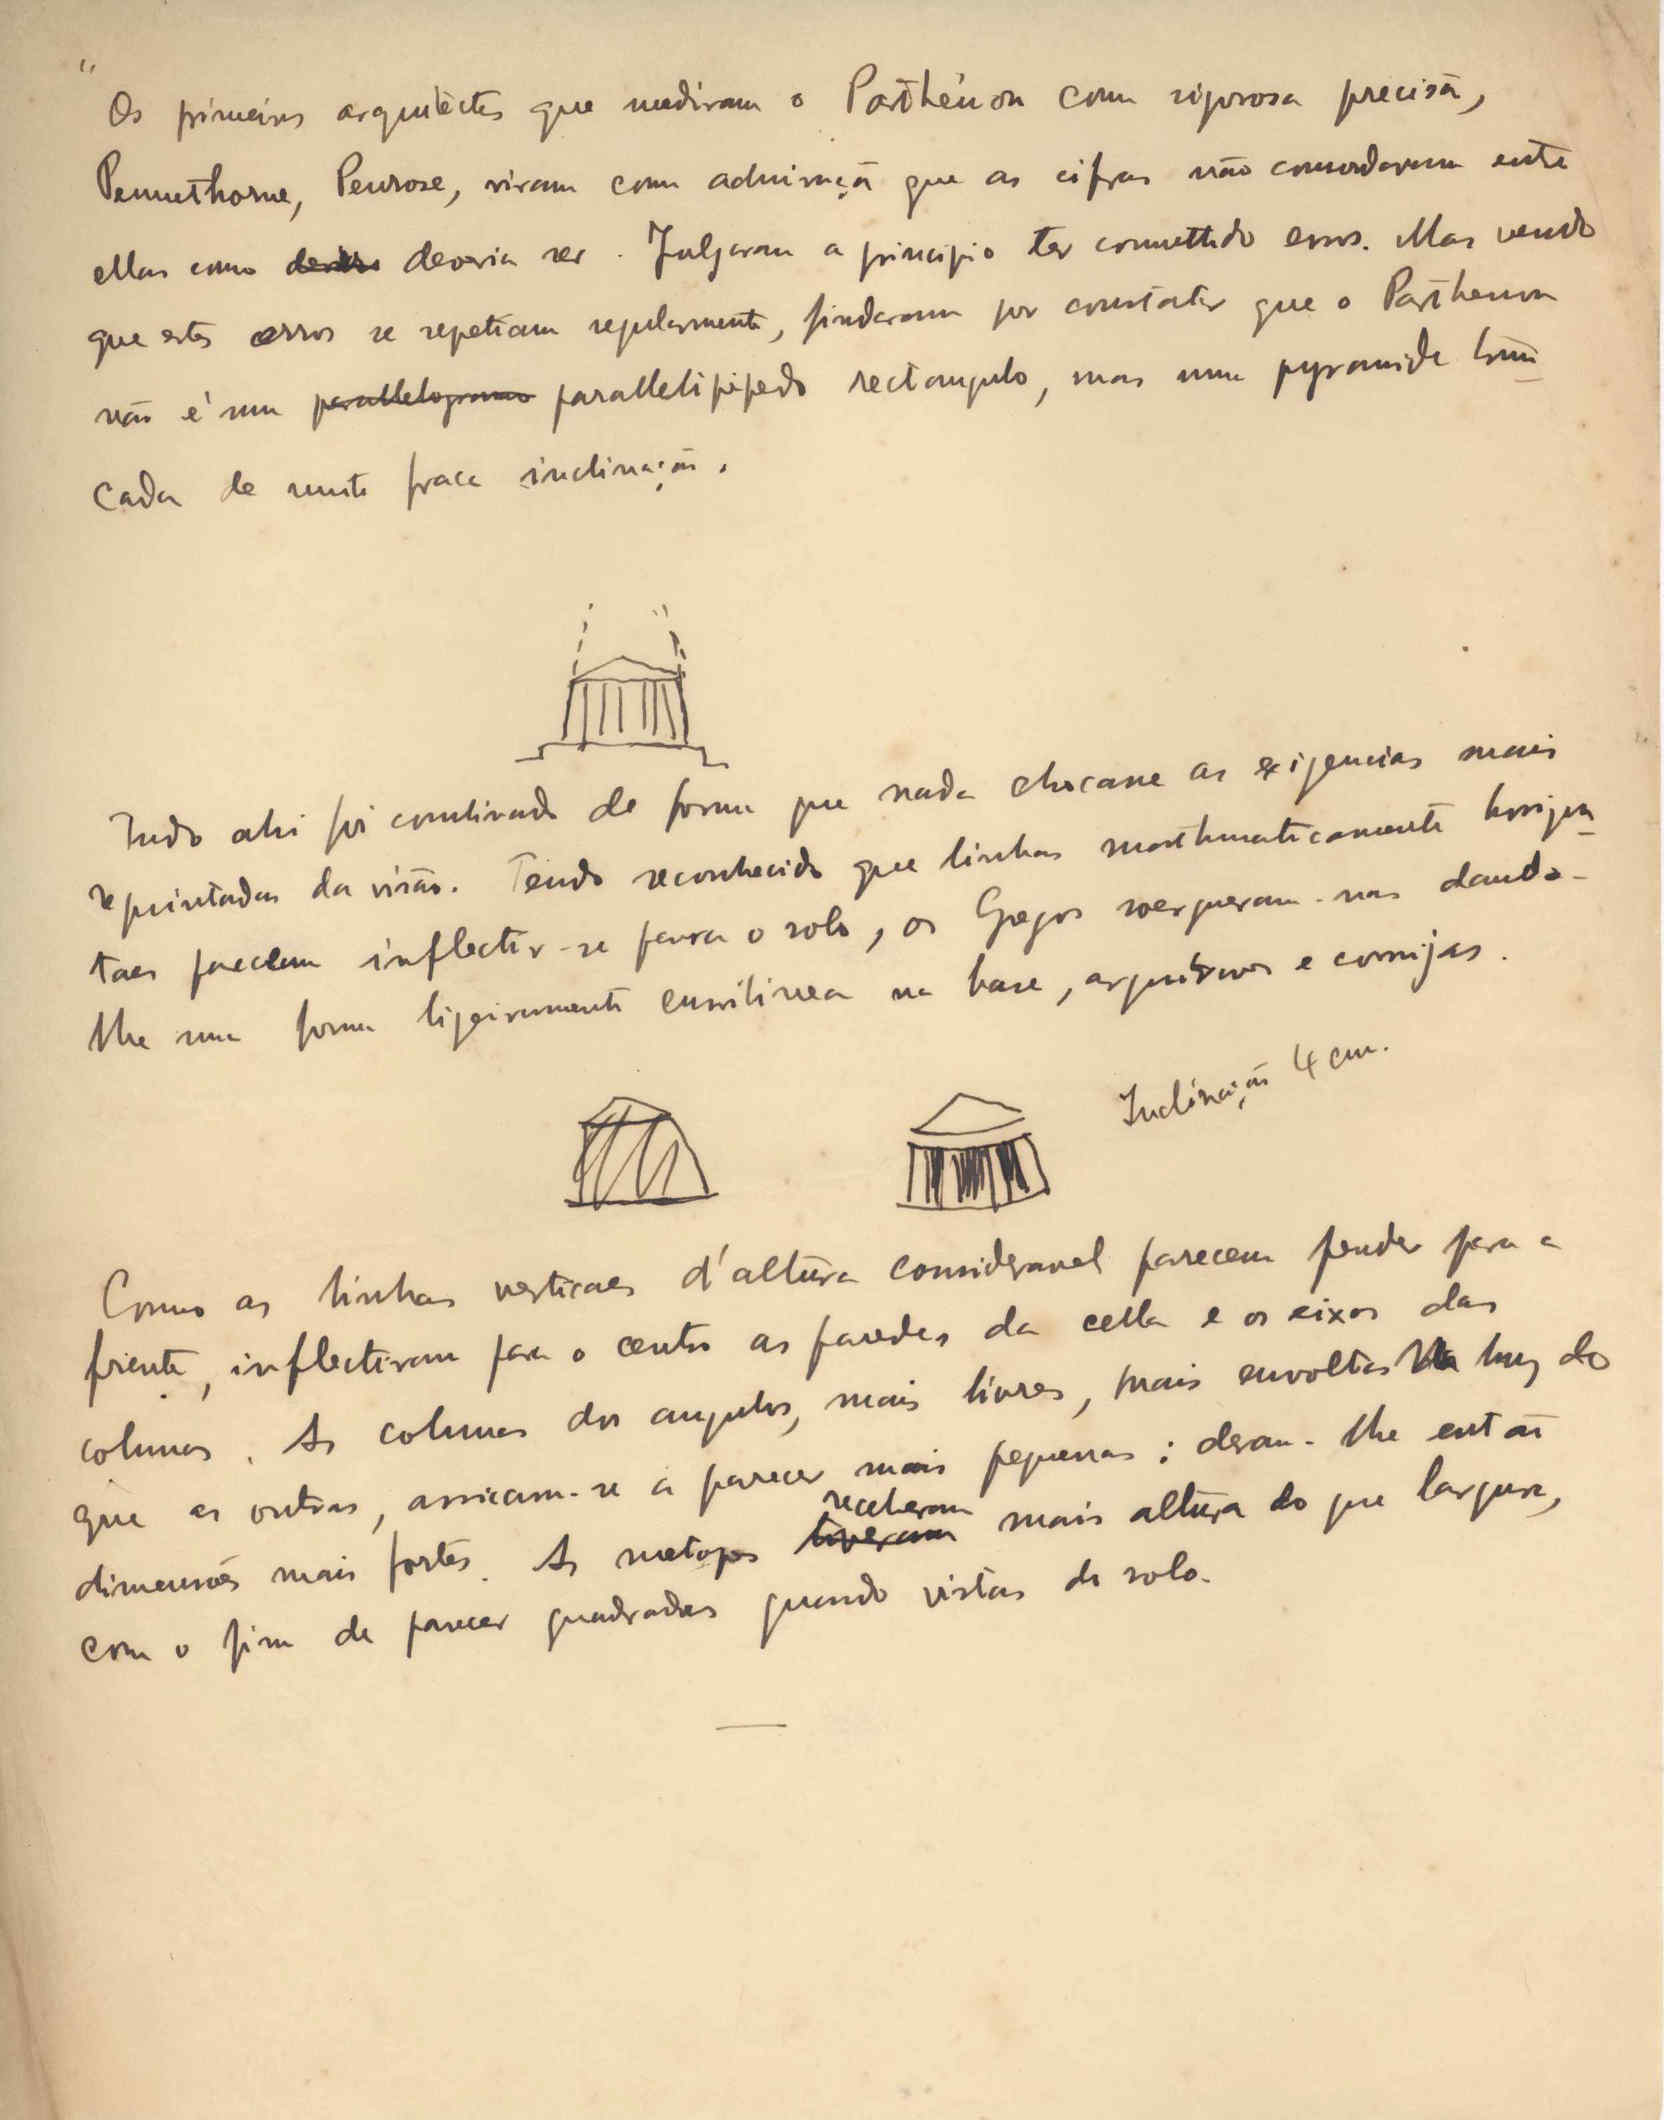 "Os primeiros arquitectos que mediram o Parthénon com rigorosa precisão,
Pennethorne, Penrose, viram com admiração que as cifras não concordavam entre
ellas como deveria ser. Julgaram a principio ter commettido erros. Mas vendo
que estes erros se repetiam regularmente, findaram por constatar que o Parthenon
não é um parallelogramo parallelipipedo rectangulo, mas uma pyramide trun-
cada de muito fraca inclinação.
Tudo ahi foi combinado de forma que nada chocasse as exigencias mais
requintadas da visão. Tendo reconhecido que linhas mathematicamente horizon-
taes parecem inflectir-se para o solo, os Gregos soergueram-nas dando-
lhe uma forma ligeiramente curvilinea na base, arquitraves e cornijas.
Inclinação 4 cm.
Como as linhas verticaes d'altura consideravel parecem pender para a
frente, inflectiram para o centro as paredes da cella e os eixos das
columnas. As columnas dos angulos, mais livres, mais envoltas na luz do
que as outras, arriscam-se a parecer mais pequenas: deram-lhe então
receberam
dimensões mais fortes. As metopas tiveram mais altura do que largura,
com o fim de parecer quadradas quando vistas do solo.